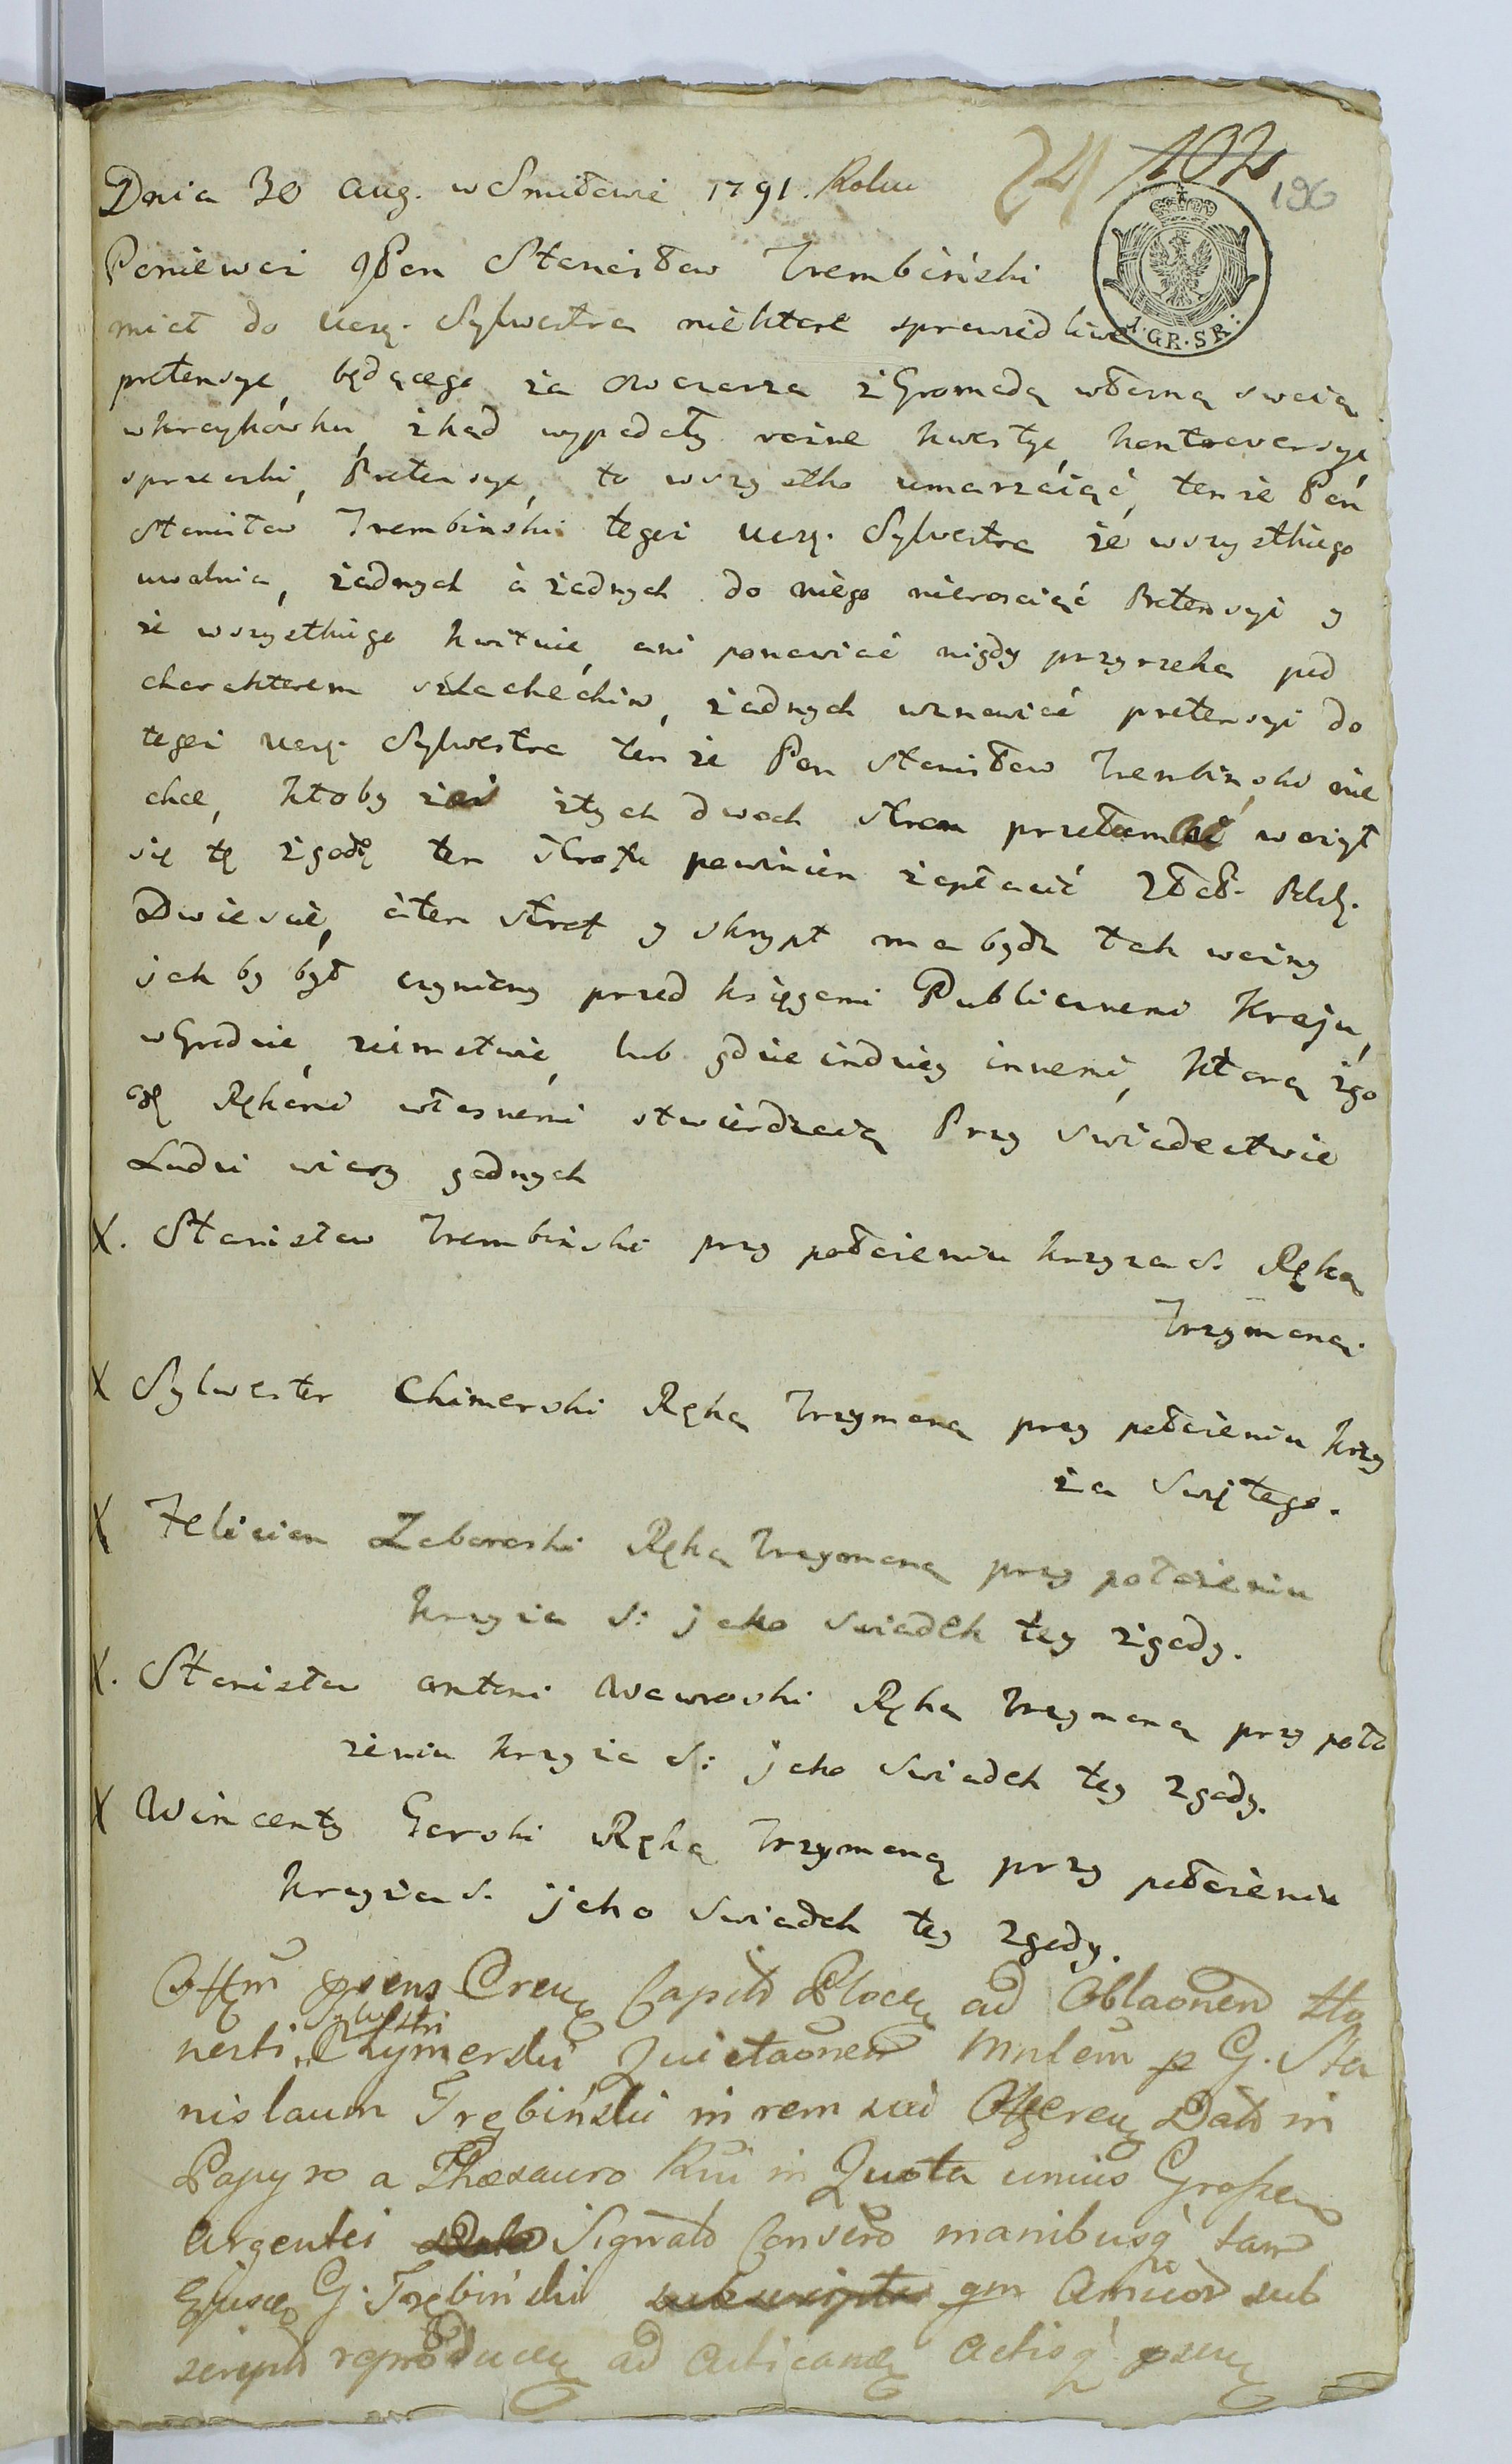 Dnia 30 aug. w Smiłowie 1791. Roku
24 102 196
1. GR. SR:
Poniewaz JPan Stanisław Trembiński
miał do ucz. Sylwestra niektore sprawiedliwe
pretensye, będącego za owczarza z Gromadą własną swoią
w krzykówku, zkąd wypadały rożne kwestye, kontrowersye
sprzeczki, Pretensye, to wszystko umarzaiąć, tenże Pan
Stanisław Trembiński tegoż ucz. Sylwestra że wszystkiego
uwalnia, żadnych a żadnych do niego nierosciąć Pretensyi y
że wszystkiego kwituie, ani ponawiać nigdy przyrzeka pod
charakterem szlacheckim, żadnych wznawiać pretensyi do
tegoż ucz. Sylwestra tenże Pan Stanisław Trembiński nie
chce, ktoby zas ztych dwoch stron przełamać wazył
się tę zgodę ten strate powinien zapłacić Złot. Polsk.
Dwiescie, a ten skrypt ma bydz tak wazny
jak by był czyniony przed księgami Publicznemi Kraju,
w Grodzie, ziemstwie, lub gdzie indziey innemi, ktorą zgo
dę Rękami własnemi stwierdzaią Przy swiadectwie
Ludzi wiary godnych
X. Stanisław Trembiński przy połozeniu krzyza S. Ręką
Trzymaną.
X Sylwester Chimerski Ręką Trzymaną przy połozeniu krzy
za Swiętego.
X Felician Zaborski Ręką Trzymaną przy połozeniu
krzyza S: jako swiadek tey zgody.
X. Stanisław antoni Nawroski Ręką Trzymaną przy poło
zeniu krzyza S: jako swiadek tey zgody.
X Wincenty Gorski Ręką Trzymaną przy połozeniu
krzyza S. jako swiadek tey zgody.
Offm psens Capit Plocen ad Oblaonem
nesti Sylvestri Chymerski Quietaonem p G. Sta
nislaum Trębiński in rem sui Offeren Dato in
Papyro a Thesauro in Quota unius Grossen
argentei Signato Conscro manibusq tam
Ejusdem G. Trębiński qm sub
script reproducen ad acticand Actisq psen